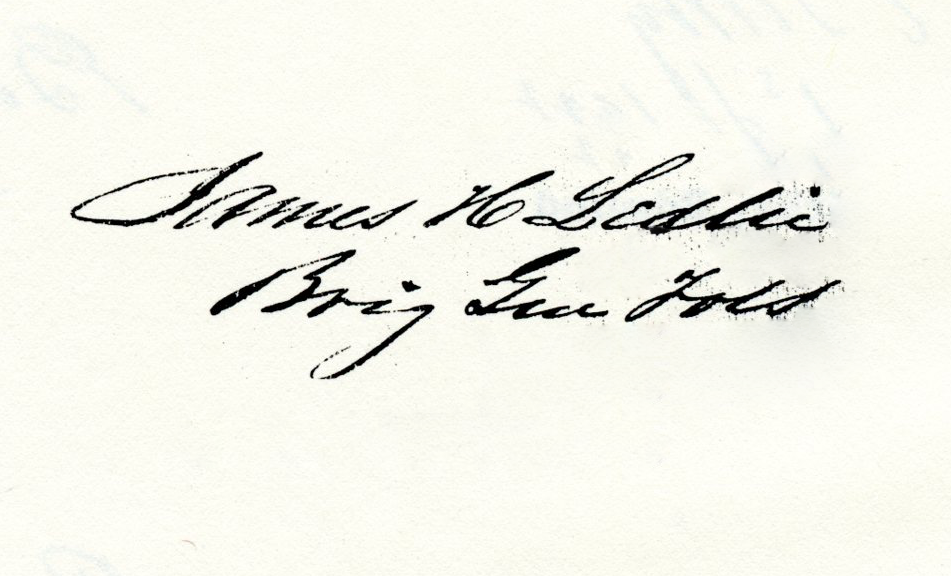 James H Leslie
Brig Gen Vols